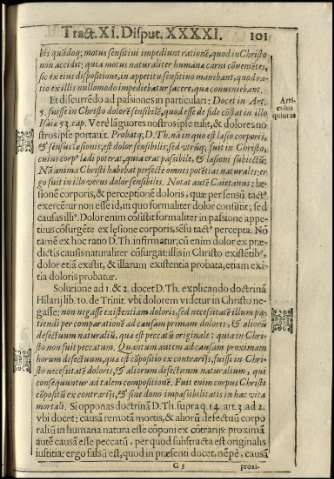 Tract. XI. Disput. XXXXI. 101
ibi quãdoq; motus sensitiui impediunt rationẽ, quod in Christo
non accidit; quia motus naturaliter humanæ carni cõuenẽtes,
sic ex eius dispositione, in appetitu sensitiuo manebant, quod ra-
tio ex illis nullomodo impediebatur facere, quæ conueniebant.
Et discurrẽdo ad passiones in particulari: Docet in Art.
5. fuisse in Christo dolorẽ sensibilẽ, quod esse de fide cõstat in illo
Isaiæ 53. cap. Vere lãguores nostros ipse tulit, & dolores no
stros ipse portauit. Probatq; D. Th. nã in quo est læsio corporis,
& sensus læsionis, est dolor sensibilis, sed vtrũq; fuit in Christo,
cuius corp⁹ lædi poterat, quia erat passibile, & læsioni subiectũ:
Nã anima Christi habebat perfectè omnes potẽtias naturales: er
go fuit in illo verus dolor sensibilis. Notat autẽ Caietanus; læ-
tione corporis, & perceptionẽ doloris, quæ per sensũ tact⁹
exercetur non esse id, in quo formaliter dolor consistit; sed
causas illi⁹. Dolor enim cõsistit formaliter in passione appe
titus cõsurgẽte ex læsione corporis, sẽsu tact⁹ percepta. Nõ
tamẽ ex hoc ratio D. Th. infirmatur; cũ enim dolor ex præ-
dictis causis naturaliter cõsurgat: illis in Christo existẽtib⁹.
dolor etiã existit, & illarum existentia probata, etiam exi-
stẽtia doloris probatur.
Solutione ad 1. & 2. docet D. Th. explicando doctrinã
Hilarij lib. 10. de Trinit. vbi dolorem videtur in Christo ne-
gasse; non negasse existentiam doloris, sed necessitatẽ illum pa-
tiendi per comparationẽ ad causam primam doloris, & aliorũ
defectuum naturaliũ, quæ est peccatũ originale: quia in Chri-
sto non fuit peccatum. Quantum autem ad causam proximam
horum defectuum, quæ est cõpositio ex contrarijs, fuisse in Chri-
sto necessitatẽ doloris, & aliorum defectuum naturalium, qui
consequuntur ad talem compositionẽ. Fuit enim corpus Christi
cõpositũ ex contrarijs, & sine dono impassibilitatis in hac vita
mortali. Si opponas doctrinã D. Th. supra q. 14. art. 3. ad 2.
vbi docet; causã remotã mortis, & aliorũ defectuũ corpo
raliũ in humana natura esse cõponi ex contrarijs: proximã
autẽ causã esse peccatũ, per quod substracta est originalis
iustitia: ergo falsũ est, quod in præsenti docet, nẽpè, causã
G 3 proxi-
Arti-
culus
quintus